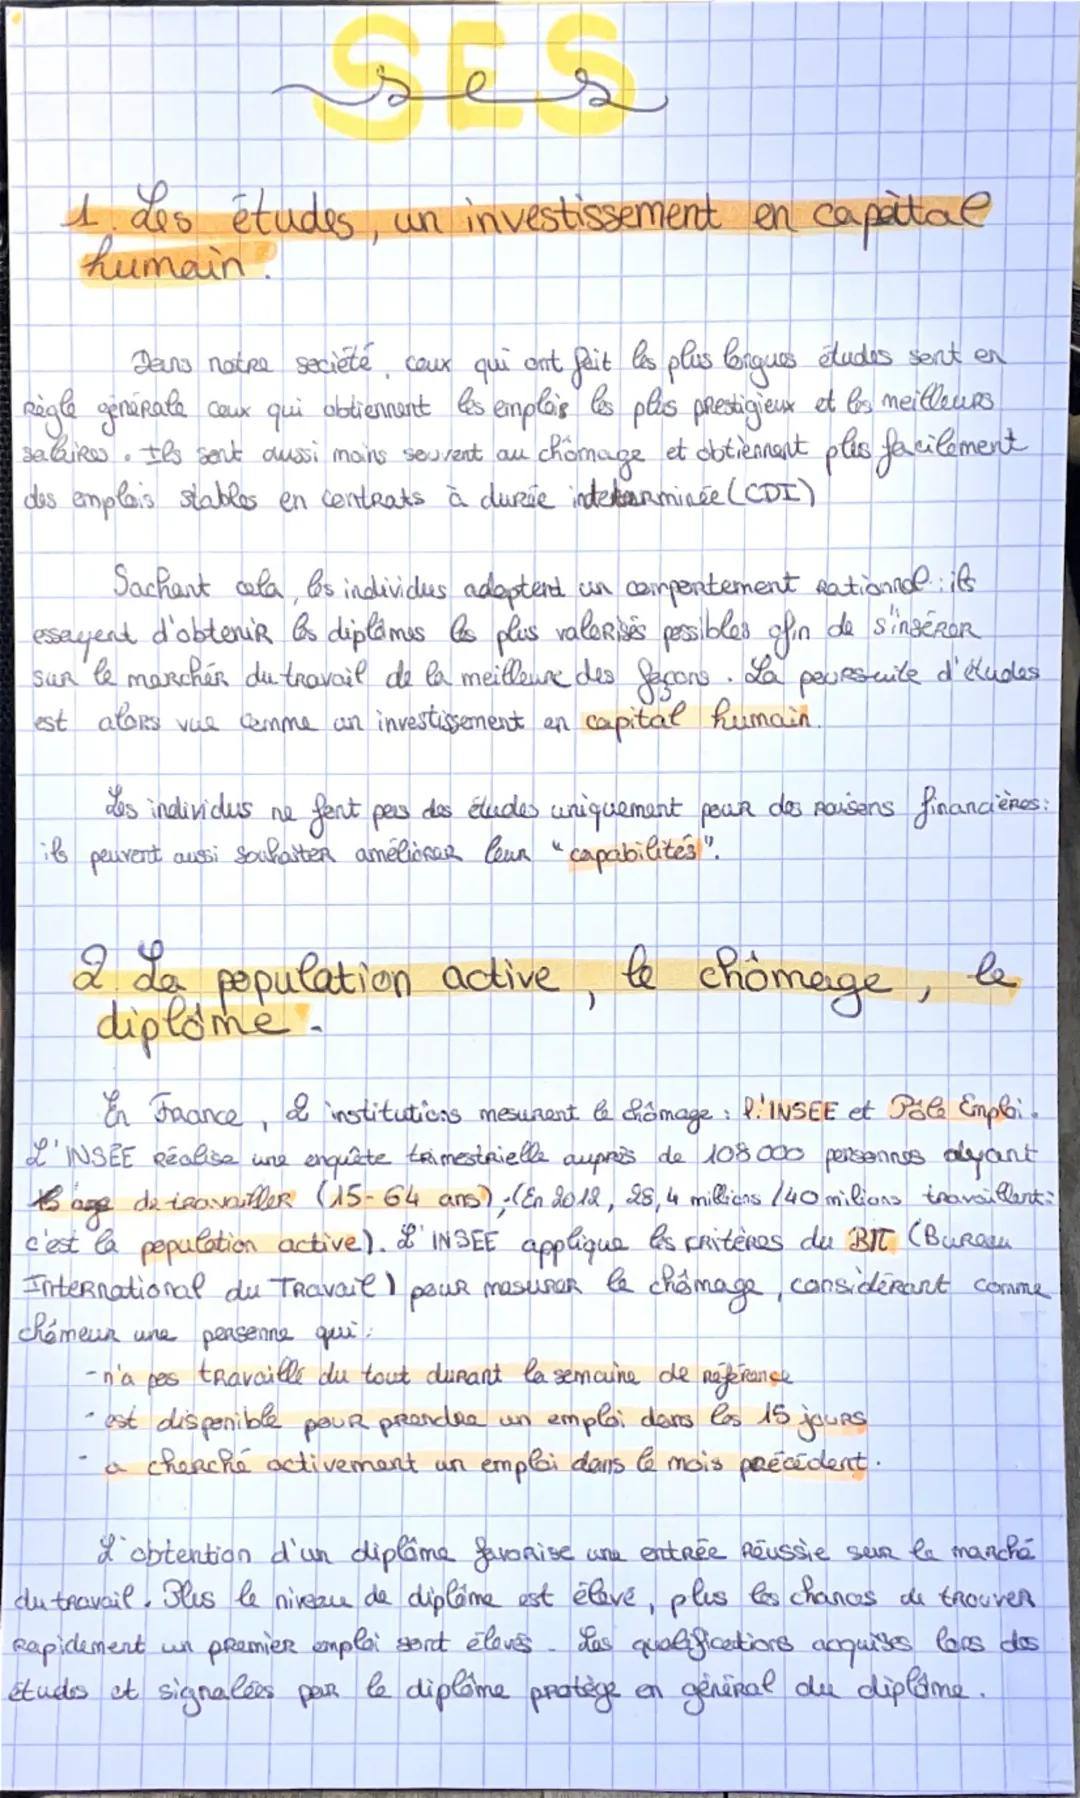 SES
ses
1. Les études, un investissement en capital
humain.
Dans notre société, ceux qui ont fait les plus longues études sont en
Règle générale ceux qui obtiennent les emplois les plus prestigieux et les meilleurs
salaires. Ils sont aussi moins souvent au chômage et obtiennent plus facilement
des emplois stables en contrats à durée indeterminée (CDI)
Sachant cela, les individus adoptent un comportement rationnel : ils
essayent d'obtenir les diplômes les plus valorisés possibles afin de s'insérer
sur le marchér du travail de la meilleure des façons. La poursuite d'études
est alors vue comme un investissement en capital humain.
Les individus ne font pas des études uniquement pour des raisons financières :
ils peuvent aussi souhaiter améliorer leur "capabilités".
2. La population active, le chômage, le
diplôme.
En France, 2 institutions mesurent le chômage : l'INSEE et Pôle Emploi.
L'INSEE réalise une enquête trimestrielle auprès de 108 000 personnes ayant
age de travailler (15-64 ans), (En 2012, 28,4 millions /40 milions travaillent :
c'est la population active). L'INSEE applique les critères du BIT (Bureau
International du Travail) pour mesurer le chômage, considérant comme
chômeur une personne qui :
- n'a pas travaillé du tout durant la semaine de référence
- est disponible pour prendre un emploi dans les 15 jours
- a cherché activement un emploi dans le mois précédent.
L'obtention d'un diplôme favorise une entrée réussie sur le marché
du travail. Plus le niveau de diplôme est élevé, plus les chances de trouver
rapidement un premier emploi sont élevés. Les qualifications acquises lors des
études et signalées par le diplôme protège en général du diplôme.